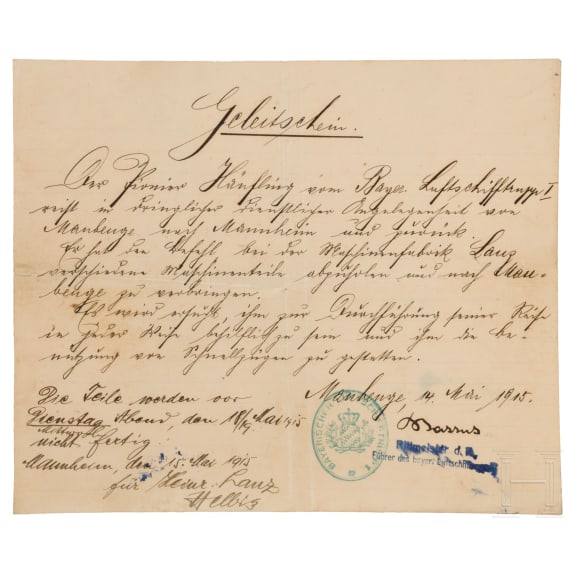 Geleitschein.
Der Pionier Häufling vom Bayer. Luftschifftrupp I
reist in dringlicher dienstlicher Angelegenheit von
Maubenge nach Mannheim und zurück.
Er hat den Befehl, bei der Maschinenfabrik Lanz
verschiedene Maschinenteile abzuholen und nach Mau-
benge zu verbringen.
Es wird ersucht, ihm zur Durchführung seiner Reise
in jeder Weise behilflich zu sein und ihm die Be-
nützung von Schnellzügen zu gestatten.
Maubenge, 14. Mai 1915.
Die Teile werden vor
Dienstag Abend, den Mai 1915
Mittwoch
nicht fertig.
Mannheim, den 15. Mai 1915
für Heinr. Lanz
Helbig
BAYERISCHER
Rittmeister d. R.
Führer des bayer. Luftschiff